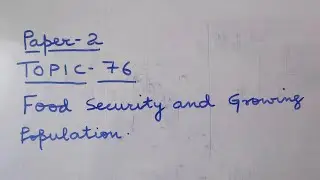 Paper-2
TOPIC-76
Food Security and Growing
Population.